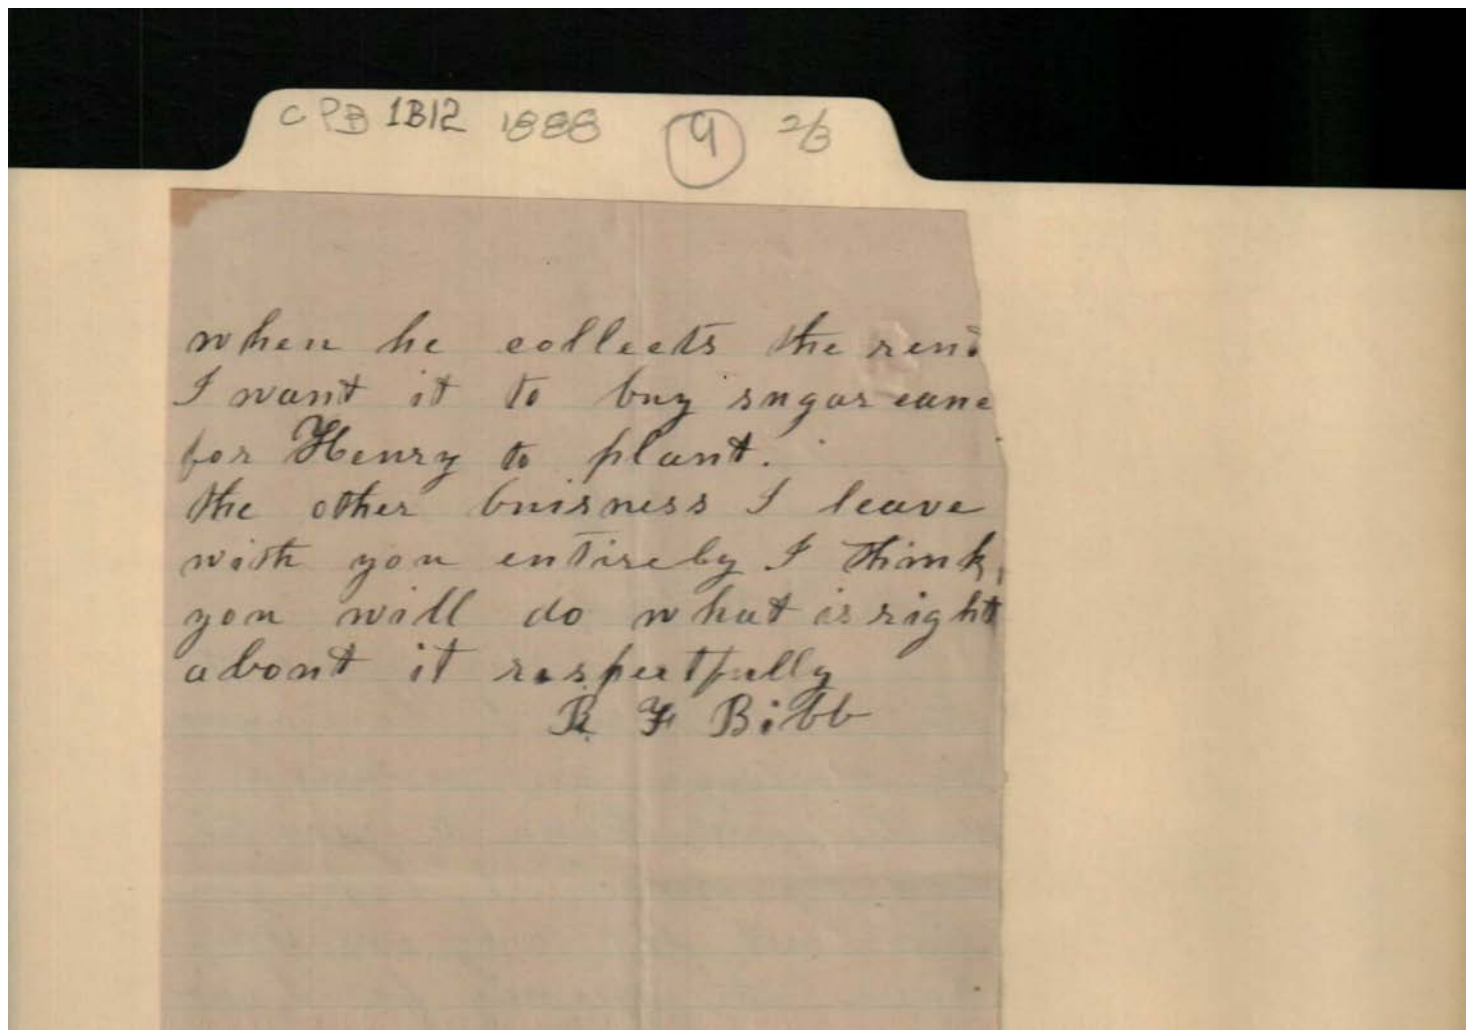 CPB 1B12 1888 9 2/3
when he collects the rent
I want it to buy sugar cane
for Henry to plant.
the other buisness I leave
with you entirely I think
you will do what is right
about it respectfully
R F Bibb